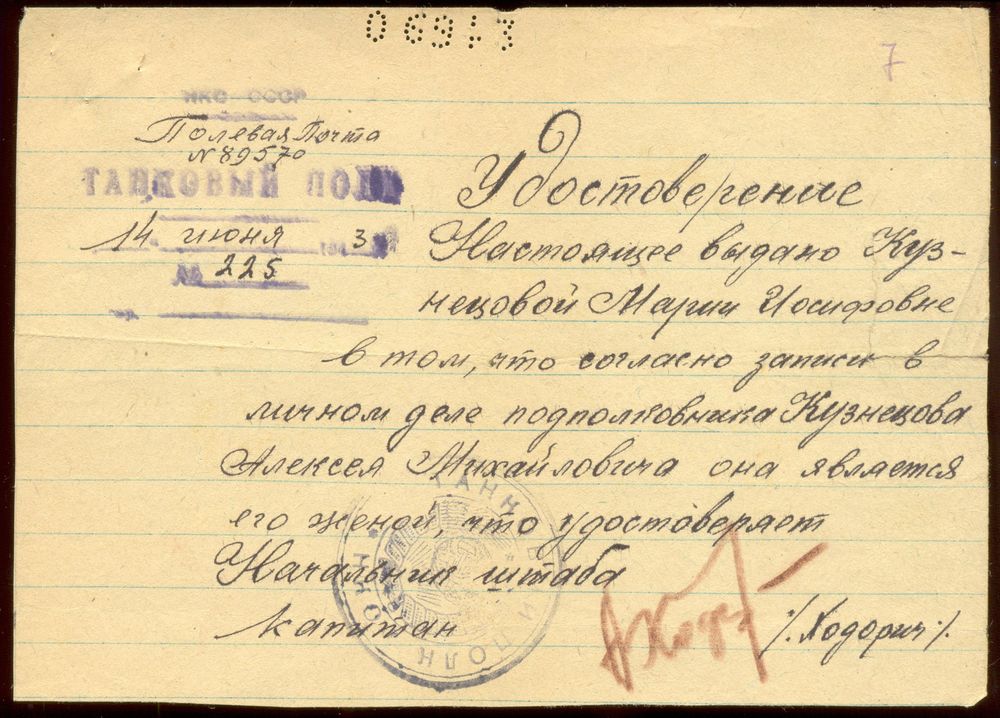 06913
7
НКО СССР
Полевая Почта
N 89570
ТАНКОВЫЙ ПОЛК
14 июня 194 3
№ 225
гор.
Удостоверение
Настоящее выдано Куз-
нецовой Марии Иосифовне
в том, что согласно записи в
личном деле подполковника Кузнецова
Алексея Михайловича она является
его женой, что удостоверяет
Начальник штаба
капитан /. Ходорич /.
ТАНКОВЫЙ ПОЛК * НКО *